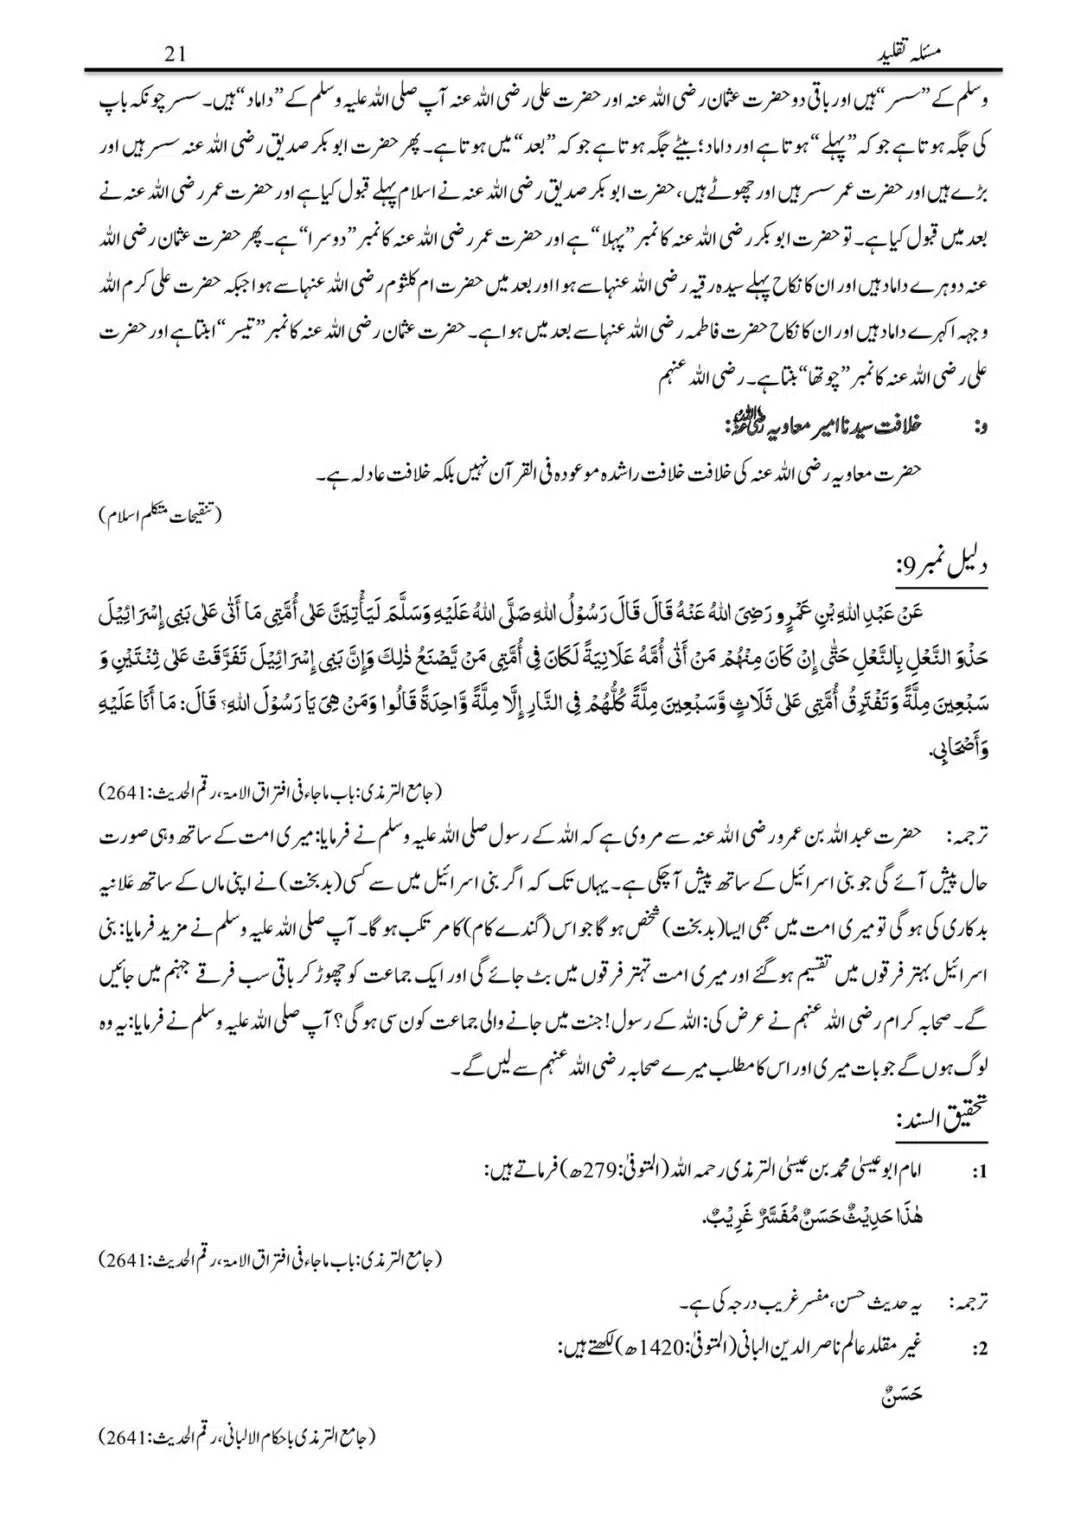 مسئلہ تقلید 21
وسلم کے ”سسر“ ہیں اور باقی دو حضرت عثمان رضی اللہ عنہ اور حضرت علی رضی اللہ عنہ آپ صلی اللہ علیہ وسلم کے ”داماد“ ہیں۔ سسر چونکہ باپ
کی جگہ ہوتا ہے جو کہ ”پہلے“ ہوتا ہے اور داماد؛ بیٹے جگہ ہوتا ہے جو کہ ”بعد“ میں ہوتا ہے۔ پھر حضرت ابو بکر صدیق رضی اللہ عنہ سسر ہیں اور
بڑے ہیں اور حضرت عمر سسر ہیں اور چھوٹے ہیں، حضرت ابو بکر صدیق رضی اللہ عنہ نے اسلام پہلے قبول کیا ہے اور حضرت عمر رضی اللہ عنہ نے
بعد میں قبول کیا ہے۔ تو حضرت ابو بکر رضی اللہ عنہ کا نمبر ”پہلا“ ہے اور حضرت عمر رضی اللہ عنہ کا نمبر ”دوسرا“ ہے۔ پھر حضرت عثمان رضی اللہ
عنہ دوہرے داماد ہیں اور ان کا نکاح پہلے سیدہ رقیہ رضی اللہ عنہا سے ہوا اور بعد میں حضرت ام کلثوم رضی اللہ عنہا سے ہوا جبکہ حضرت علی کرم اللہ
وجہہ اکہرے داماد ہیں اور ان کا نکاح حضرت فاطمہ رضی اللہ عنہا سے بعد میں ہوا ہے۔ حضرت عثمان رضی اللہ عنہ کا نمبر ”تیسر“ ابنتا ہے اور حضرت
علی رضی اللہ عنہ کا نمبر ”چوتھا“ بنتا ہے۔ رضی اللہ عنہم
و: خلافت سیدنا امیر معاویہ رضی اللہ عنہ:
حضرت معاویہ رضی اللہ عنہ کی خلافت خلافت راشدہ موعودہ فی القرآن نہیں بلکہ خلافت عادلہ ہے۔
(تنقیحات متکلم اسلام)
دلیل نمبر 9:
عَنْ عَبْدِ اللهِ بْنِ عَمْرٍو رَضِیَ اللهُ عَنْهُ قَالَ قَالَ رَسُوْلُ اللهِ صَلَّی اللهُ عَلَیْهِ وَسَلَّمَ لَیَأْتِیَنَّ عَلٰی أُمَّتِی مَا أَتٰی عَلٰی بَنِی إِسْرَائِیْلَ
حَذْوَ النَّعْلِ بِالنَّعْلِ حَتّٰی إِنْ کَانَ مِنْهُمْ مَنْ أَتٰی أُمَّهُ عَلَانِیَةً لَکَانَ فِی أُمَّتِی مَنْ یَّصْنَعُ ذٰلِكَ وَإِنَّ بَنِی إِسْرَائِیْلَ تَفَرَّقَتْ عَلٰی ثِنْتَیْنِ وَ
سَبْعِیْنَ مِلَّةً وَتَفْتَرِقُ أُمَّتِی عَلٰی ثَلَاثٍ وَّسَبْعِیْنَ مِلَّةً کُلُّهُمْ فِی النَّارِ إِلَّا مِلَّةً وَّاحِدَةً قَالُوْا وَمَنْ هِیَ یَا رَسُوْلَ اللهِ؟ قَالَ: مَا أَنَا عَلَیْهِ
وَأَصْحَابِی.
(جامع الترمذی: باب ماجاء فی افتراق الامۃ، رقم الحدیث: 2641)
ترجمہ: حضرت عبد اللہ بن عمرو رضی اللہ عنہ سے مروی ہے کہ اللہ کے رسول صلی اللہ علیہ وسلم نے فرمایا: میری امت کے ساتھ وہی صورت
حال پیش آئے گی جو بنی اسرائیل کے ساتھ پیش آچکی ہے۔ یہاں تک کہ اگر بنی اسرائیل میں سے کسی (بد بخت) نے اپنی ماں کے ساتھ عَلانیہ
بدکاری کی ہو گی تو میری امت میں بھی ایسا (بد بخت) شخص ہو گا جو اس (گندے کام) کا مرتکب ہو گا۔ آپ صلی اللہ علیہ وسلم نے مزید فرمایا: بنی
اسرائیل بہتر فرقوں میں تقسیم ہو گئے اور میری امت تہتر فرقوں میں بٹ جائے گی اور ایک جماعت کو چھوڑ کر باقی سب فرقے جہنم میں جائیں
گے۔ صحابہ کرام رضی اللہ عنہم نے عرض کی: اللہ کے رسول! جنت میں جانے والی جماعت کون سی ہو گی؟ آپ صلی اللہ علیہ وسلم نے فرمایا: یہ وہ
لوگ ہوں گے جو بات میری اور اس کا مطلب میرے صحابہ رضی اللہ عنہم سے لیں گے۔
تحقیق السند:
1: امام ابو عیسیٰ محمد بن عیسیٰ الترمذی رحمہ اللہ (المتوفیٰ: 279ھ) فرماتے ہیں:
هٰذَا حَدِیْثٌ حَسَنٌ مُفَسَّرٌ غَرِیْبٌ.
(جامع الترمذی: باب ماجاء فی افتراق الامۃ، رقم الحدیث: 2641)
ترجمہ: یہ حدیث حسن، مفسر غریب درجہ کی ہے۔
2: غیر مقلد عالم ناصر الدین البانی (المتوفیٰ: 1420ھ) لکھتے ہیں:
حَسَنٌ
(جامع الترمذی باحکام الالبانی، رقم الحدیث: 2641)